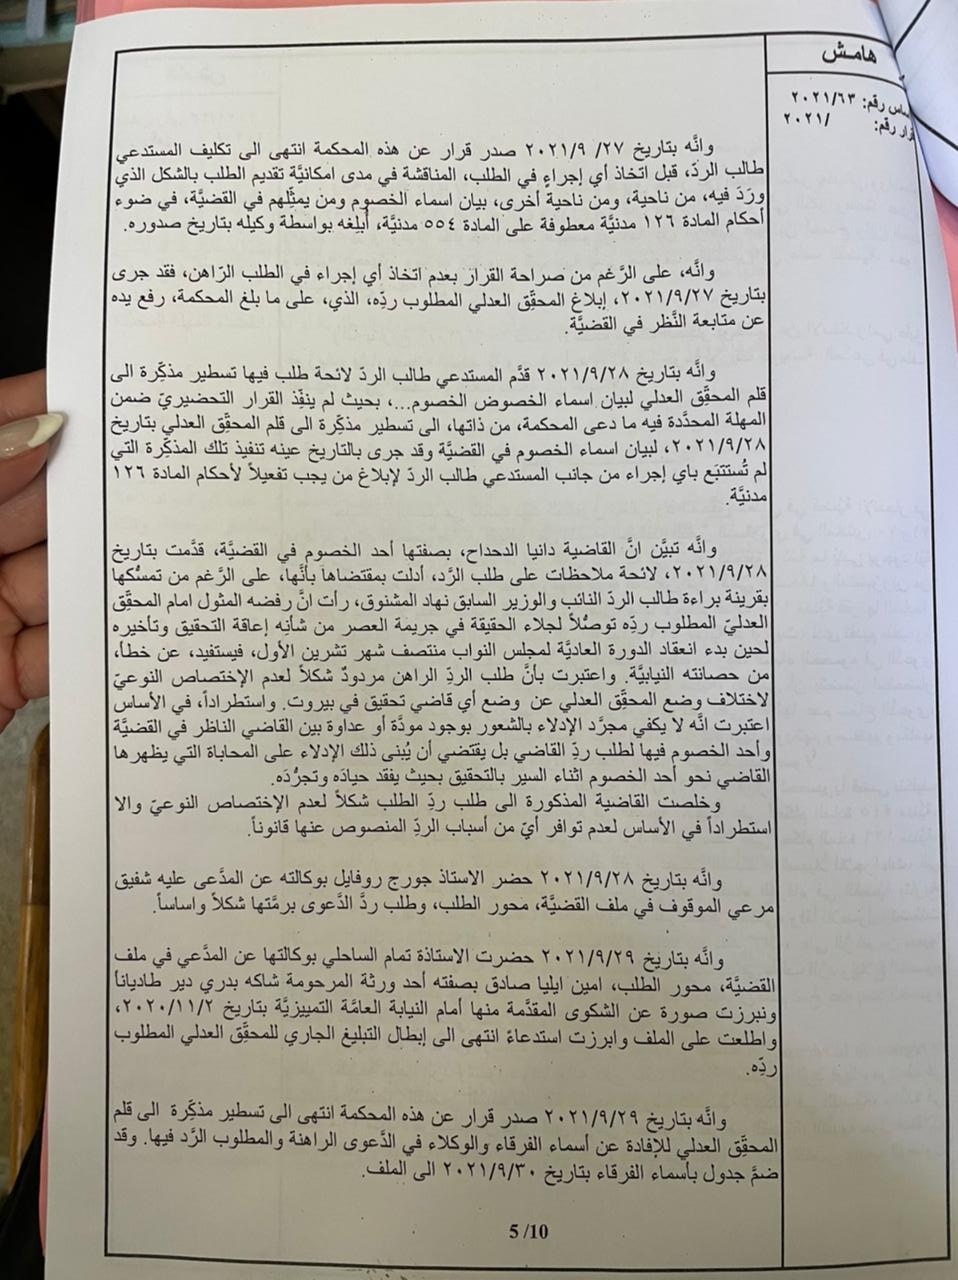 هامش
ساس رقم: ٢٠٢١/٦٣
رار رقم: /٢٠٢١
وانَّه بتاريخ ٢٧/ ٢٠٢١/٩ صدر قرار عن هذه المحكمة انتهى الى تكليف المستدعي
طالب الردّ، قبل اتخاذ أي إجراءٍ في الطلب، المناقشة في مدى امكانيَّة تقديم الطلب بالشكل الذي
ورَدَ فيه، من ناحية، ومن ناحية أخرى، بيان اسماء الخصوم ومن يمثِّلهم في القضيَّة، في ضوء
أحكام المادة ١٢٦ مدنيَّة معطوفة على المادة ٥٥٤ مدنيَّة، أُبلِغه بواسطة وكيله بتاريخ صدوره.
وانَّه، على الرَّغم من صراحة القرار بعدم اتخاذ أي إجراء في الطلب الرَّاهن، فقد جرى
بتاريخ ٢٠٢١/٩/٢٧، إبلاغ المحقِّق العدلي المطلوب ردِّه، الذي، على ما بلغ المحكمة، رفع يده
عن متابعة النَّظر في القضيَّة.
وانَّه بتاريخ ٢٠٢١/٩/٢٨ قدَّم المستدعي طالب الردّ لائحة طلب فيها تسطير مذكِّرة الى
قلم المحقِّق العدلي لبيان اسماء الخصوض الخصوم...، بحيث لم ينفِّذ القرار التحضيريّ ضمن
المهلة المحدَّدة فيه ما دعى المحكمة، من ذاتها، الى تسطير مذكِّرة الى قلم المحقِّق العدلي بتاريخ
٢٠٢١/٩/٢٨، لبيان اسماء الخصوم في القضيَّة وقد جرى بالتاريخ عينه تنفيذ تلك المذكِّرة التي
لم تُستتبَع باي إجراء من جانب المستدعي طالب الردّ لإبلاغ من يجب تفعيلاً لأحكام المادة ١٢٦
مدنيَّة.
وانَّه تبيَّن انَّ القاضية دانيا الدحداح، بصفتها أحد الخصوم في القضيَّة، قدَّمت بتاريخ
٢٠٢١/٩/٢٨، لائحة ملاحظات على طلب الرَّد، أدلت بمقتضاها بأنَّها، على الرَّغم من تمسُّكها
بقرينة براءة طالب الردّ النائب والوزير السابق نهاد المشنوق، رأت انَّ رفضه المثول امام المحقِّق
العدليّ المطلوب ردِّه توصُّلاً لجلاء الحقيقة في جريمة العصر من شأنِه إعاقة التحقيق وتأخيره
لحين بدء انعقاد الدورة العاديَّة لمجلس النواب منتصف شهر تشرين الأول، فيستفيد، عن خطأ،
من حصانته النيابيَّة. واعتبرت بأنَّ طلب الردّ الراهن مردودٌ شكلاً لعدم الإختصاص النوعيّ
لاختلاف وضع المحقِّق العدلي عن وضع أي قاضي تحقيق في بيروت. واستطراداً، في الأساس
اعتبرت انَّه لا يكفي مجرَّد الإدلاء بالشعور بوجود مودَّة أو عداوة بين القاضي الناظر في القضيَّة
وأحد الخصوم فيها لطلب ردِّ القاضي بل يقتضي أن يُبنى ذلك الإدلاء على المحاباة التي يظهرها
القاضي نحو أحد الخصوم اثناء السير بالتحقيق بحيث يفقد حيادَه وتجرُّدَه.
وخلصت القاضية المذكورة الى طلب ردِّ الطلب شكلاً لعدم الإختصاص النوعيّ والا
استطراداً في الأساس لعدم توافر أيّ من أسباب الردِّ المنصوص عنها قانوناً.
وانَّه بتاريخ ٢٠٢١/٩/٢٨ حضر الاستاذ جورج روفايل بوكالته عن المدَّعى عليه شفيق
مرعي الموقوف في ملف القضيَّة، محور الطلب، وطلب ردَّ الدَّعوى برمَّتها شكلاً واساساً.
وانَّه بتاريخ ٢٠٢١/٩/٢٩ حضرت الاستاذة تمام الساحلي بوكالتها عن المدَّعي في ملف
القضيَّة، محور الطلب، امين ايليا صادق بصفته أحد ورثة المرحومة شاكه بدري دير طاديانأ
ونبرزت صورة عن الشكوى المقدَّمة منها أمام النيابة العامَّة التمييزيَّة بتاريخ ٢٠٢٠/١١/٢،
واطلعت على الملف وابرزت استدعاءً انتهى الى إبطال التبليغ الجاري للمحقِّق العدلي المطلوب
ردِّه.
وانَّه بتاريخ ٢٠٢١/٩/٢٩ صدر قرار عن هذه المحكمة انتهى الى تسطير مذكِّرة الى قلم
المحقِّق العدلي للإفادة عن أسماء الفرقاء والوكلاء في الدَّعوى الراهنة والمطلوب الرَّد فيها. وقد
ضمَّ جدول بأسماء الفرقاء بتاريخ ٢٠٢١/٩/٣٠ الى الملف.
5/10